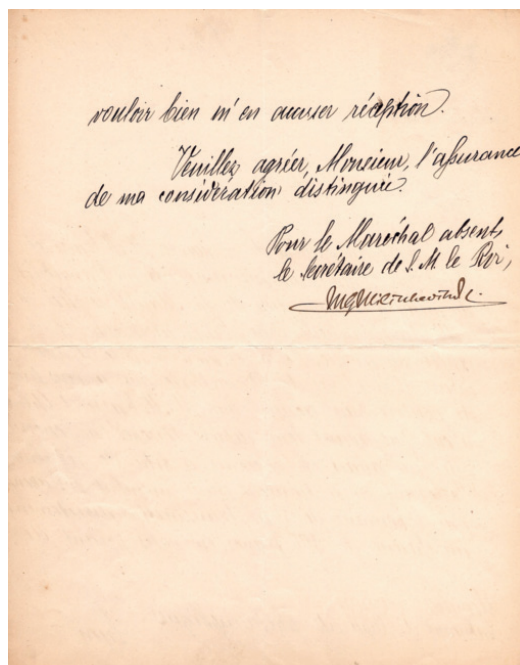 vouloir bien m'en accuser réception.
Veuillez agréer, Monsieur, l'assurance
de ma considération distinguée.
Pour le Maréchal absent,
le Secrétaire de S. M. le Roi,